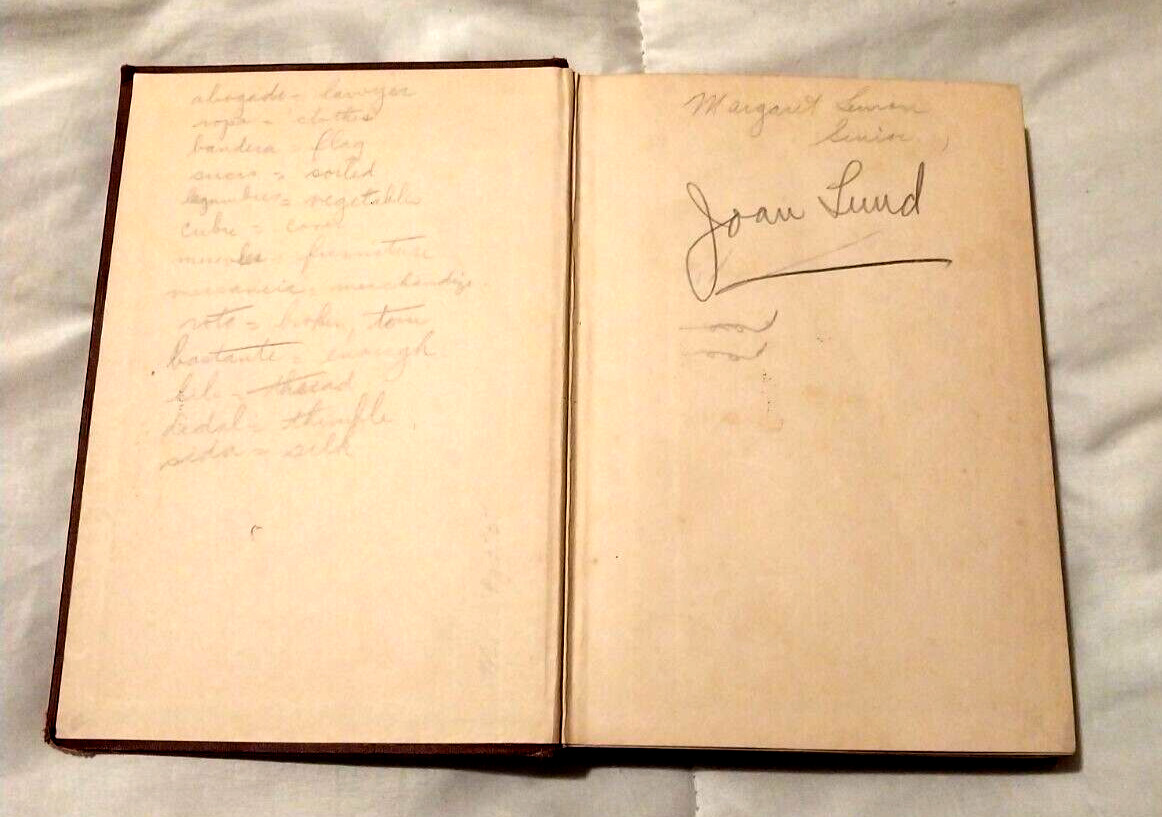 abogado = lawyer
ropa = clothes
bandera = flag
= sorted
legumbres = vegetable
cubre =
muebles = furniture
= merchandize
roto = broken, torn
bastante = enough
= thread
dedal = thimble
seda = silk
Margaret
Senior
Joan Lund